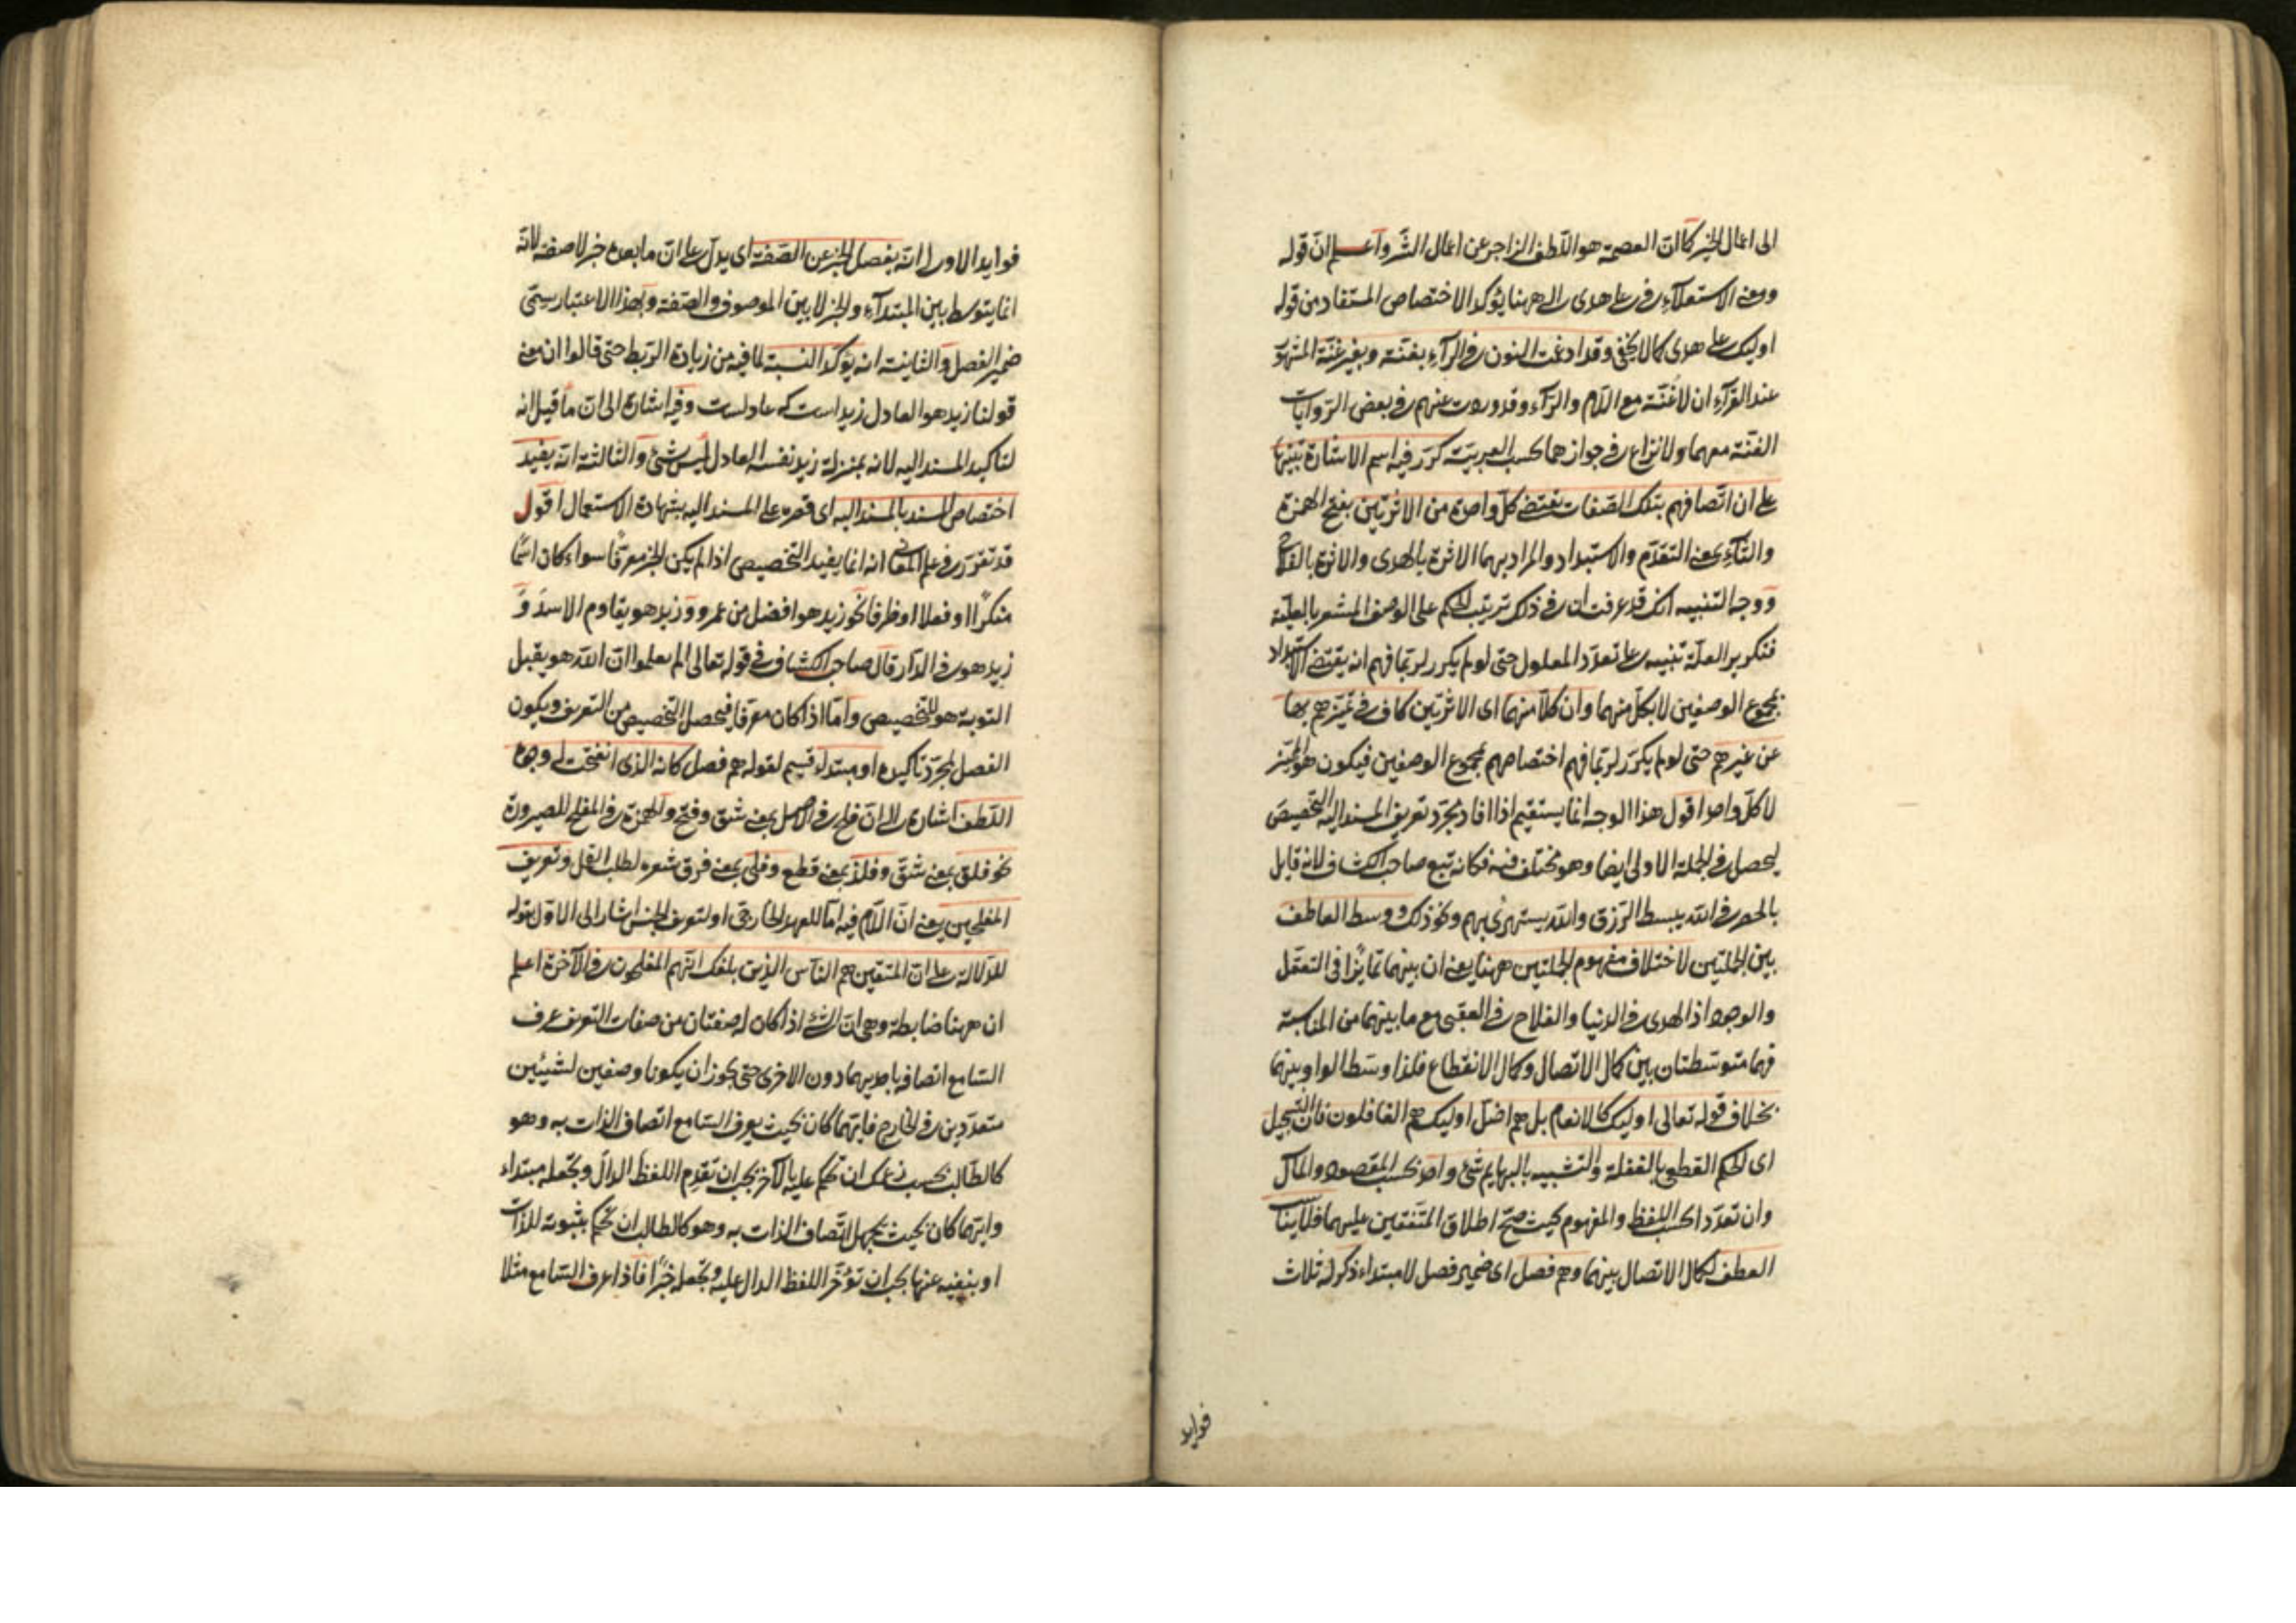 الى اعمال الخير كما ان العصمة هو اللطف الزاجر عن اعمال الشر واعلم ان قوله
ومعنى الاستعلاء في على هدى الى ههنا يؤكد الاختصاص المستفاد من قوله
اوليك على هدى كما لا يخفى وقد ادغمت النون في الرآء بغنة وبغير غنة المشهور
عند القرآء ان لا غنة مع اللام والرآء وقد وردت عنهم في بعض الروايات
الغنة معهما ولا نزاع في جوازهما بحسب العربية كرر فيه اسم الاشارة تنبيها
على ان اتصافهم بتلك الصفات يقتضى كل واحدة من الاثرتين بفتح الهمزة
والثآء بمعنى التقدم والاستبداد والمراد بهما الاثرة بالهدى والاثرة بالفلاح
ووجه التنبيه انك قد عرفت ان في ذلك ترتيب الحكم على الوصف المشعر بالعلية
فتكرير العلة تنبيه على تعدد المعلول حتى لو لم يكرر لربما فهم انه يقتضى الاستبداد
بمجموع الوصفين لا بكل منهما وان كلا منهما اى الاثرتين كاف في تميزهم بها
عن غيرهم حتى لو لم يكرر لربما فهم اختصاصهم بمجموع الوصفين فيكون هو المميز
لا كل واحد اقول هذا الوجه انما يستقيم اذا افاد مجرد تعريف المسند اليه التخصيص
ليحصل في الجملة الاولى ايضا وهو مختلف فيه فكانه تبع صاحب الكشاف لانه قايل
بالحصر في الله يبسط الرزق والله يستهزئ بهم ونحو ذلك ووسط العاطف
بين الجملتين لاختلاف مفهوم الجملتين ههنا يعنى ان بينهما تمايزا فى التعقل
والوجود اذ الهدى في الدنيا والفلاح في العقبى مع ما بينهما من المناسبة
فهما متوسطتان بين كمال الاتصال وكمال الانقطاع فلذا وسط الواو بينهما
بخلاف قوله تعالى اوليك كالانعام بل هم اضل اوليك هم الغافلون فان التسجيل
اى الحكم القطعى بالغفلة والتشبيه بالبهايم شئ واحد بحسب المقصود والمآل
وان تعددا بحسب اللفظ والمفهوم بحيث صح اطلاق المتفقين عليهما فلا يناسب
العطف لكمال الاتصال بينهما وهم فصل اى ضمير فصل لا مبتداء ذكر له ثلاث
فوايد
فوايد الاولى انه يفصل الخبر عن الصفة اى يدل على ان ما بعده خبر لا صفة لانه
انما يتوسط بين المبتدآء والخبر لا بين الموصوف والصفة وبهذا الاعتبار سمى
ضمير الفصل والثانية انه يؤكد النسبة لما فيه من زيادة الربط حتى قالوا ان معنى
قولنا زيد هو العادل زيد است كه عادلست وفيه اشارة الى ان ما قيل انه
لتاكيد المسند اليه لانه بمنزلة زيد نفسه العادل ليس بشئ والثالثة انه يفيد
اختصاص المسند بالمسند اليه اى قصره على المسند اليه بشهادة الاستعمال اقول
قد تقرر في علم المعانى انه انما يفيد التخصيص اذا لم يكن الخبر معرفا سواء كان اسما
منكرا او فعلا او ظرفا نحو زيد هو افضل من عمرو وزيد هو يقاوم الاسد و
زيد هو في الدار قال صاحب الكشاف في قوله تعالى الم يعلموا ان الله هو يقبل
التوبة هو للتخصيص واما اذا كان معرفا فيحصل التخصيص من التعريف ويكون
الفصل لمجرد تاكيده او مبتداء قسيم لقوله هم فصل كانه الذى انفتحت له وجوه
اللطف اشارة الى ان فلح في الاصل بمعنى شق وفتح والهمزة في المفلح للصيرورة
نحو فلق بمعنى شق وفلذ بمعنى قطع وفلى بمعنى فرق شعره لطلب القمل وتعريف
المفلحين يعنى ان اللام فيه اما للعهد الخارجى او لتعريف الجنس اشار الى الاول بقوله
للدلالة على ان المتقين هم الناس الذين بلغك انهم المفلحون في الآخرة اعلم
ان ههنا ضابطة وهى ان الشئ اذا كان له صفتان من صفات التعريف عرف
السامع اتصافه باحديهما دون الاخرى حتى يجوز ان يكونا وصفين لشيئين
متعددين في الخارج فايتهما كان بحيث يعرف السامع اتصاف الذات به وهو
كالطالب بحسب زعمك ان تحكم عليه بالآخر يجب ان تقدم اللفظ الدال وتجعله مبتداء
وايتهما كان بحيث يجهل اتصاف الذات به وهو كالطالب ان تحكم بثبوته للذات
او بنفيه عنها يجب ان تؤخر اللفظ الدال عليه وتجعله خبرا فاذا عرف السامع مثلا